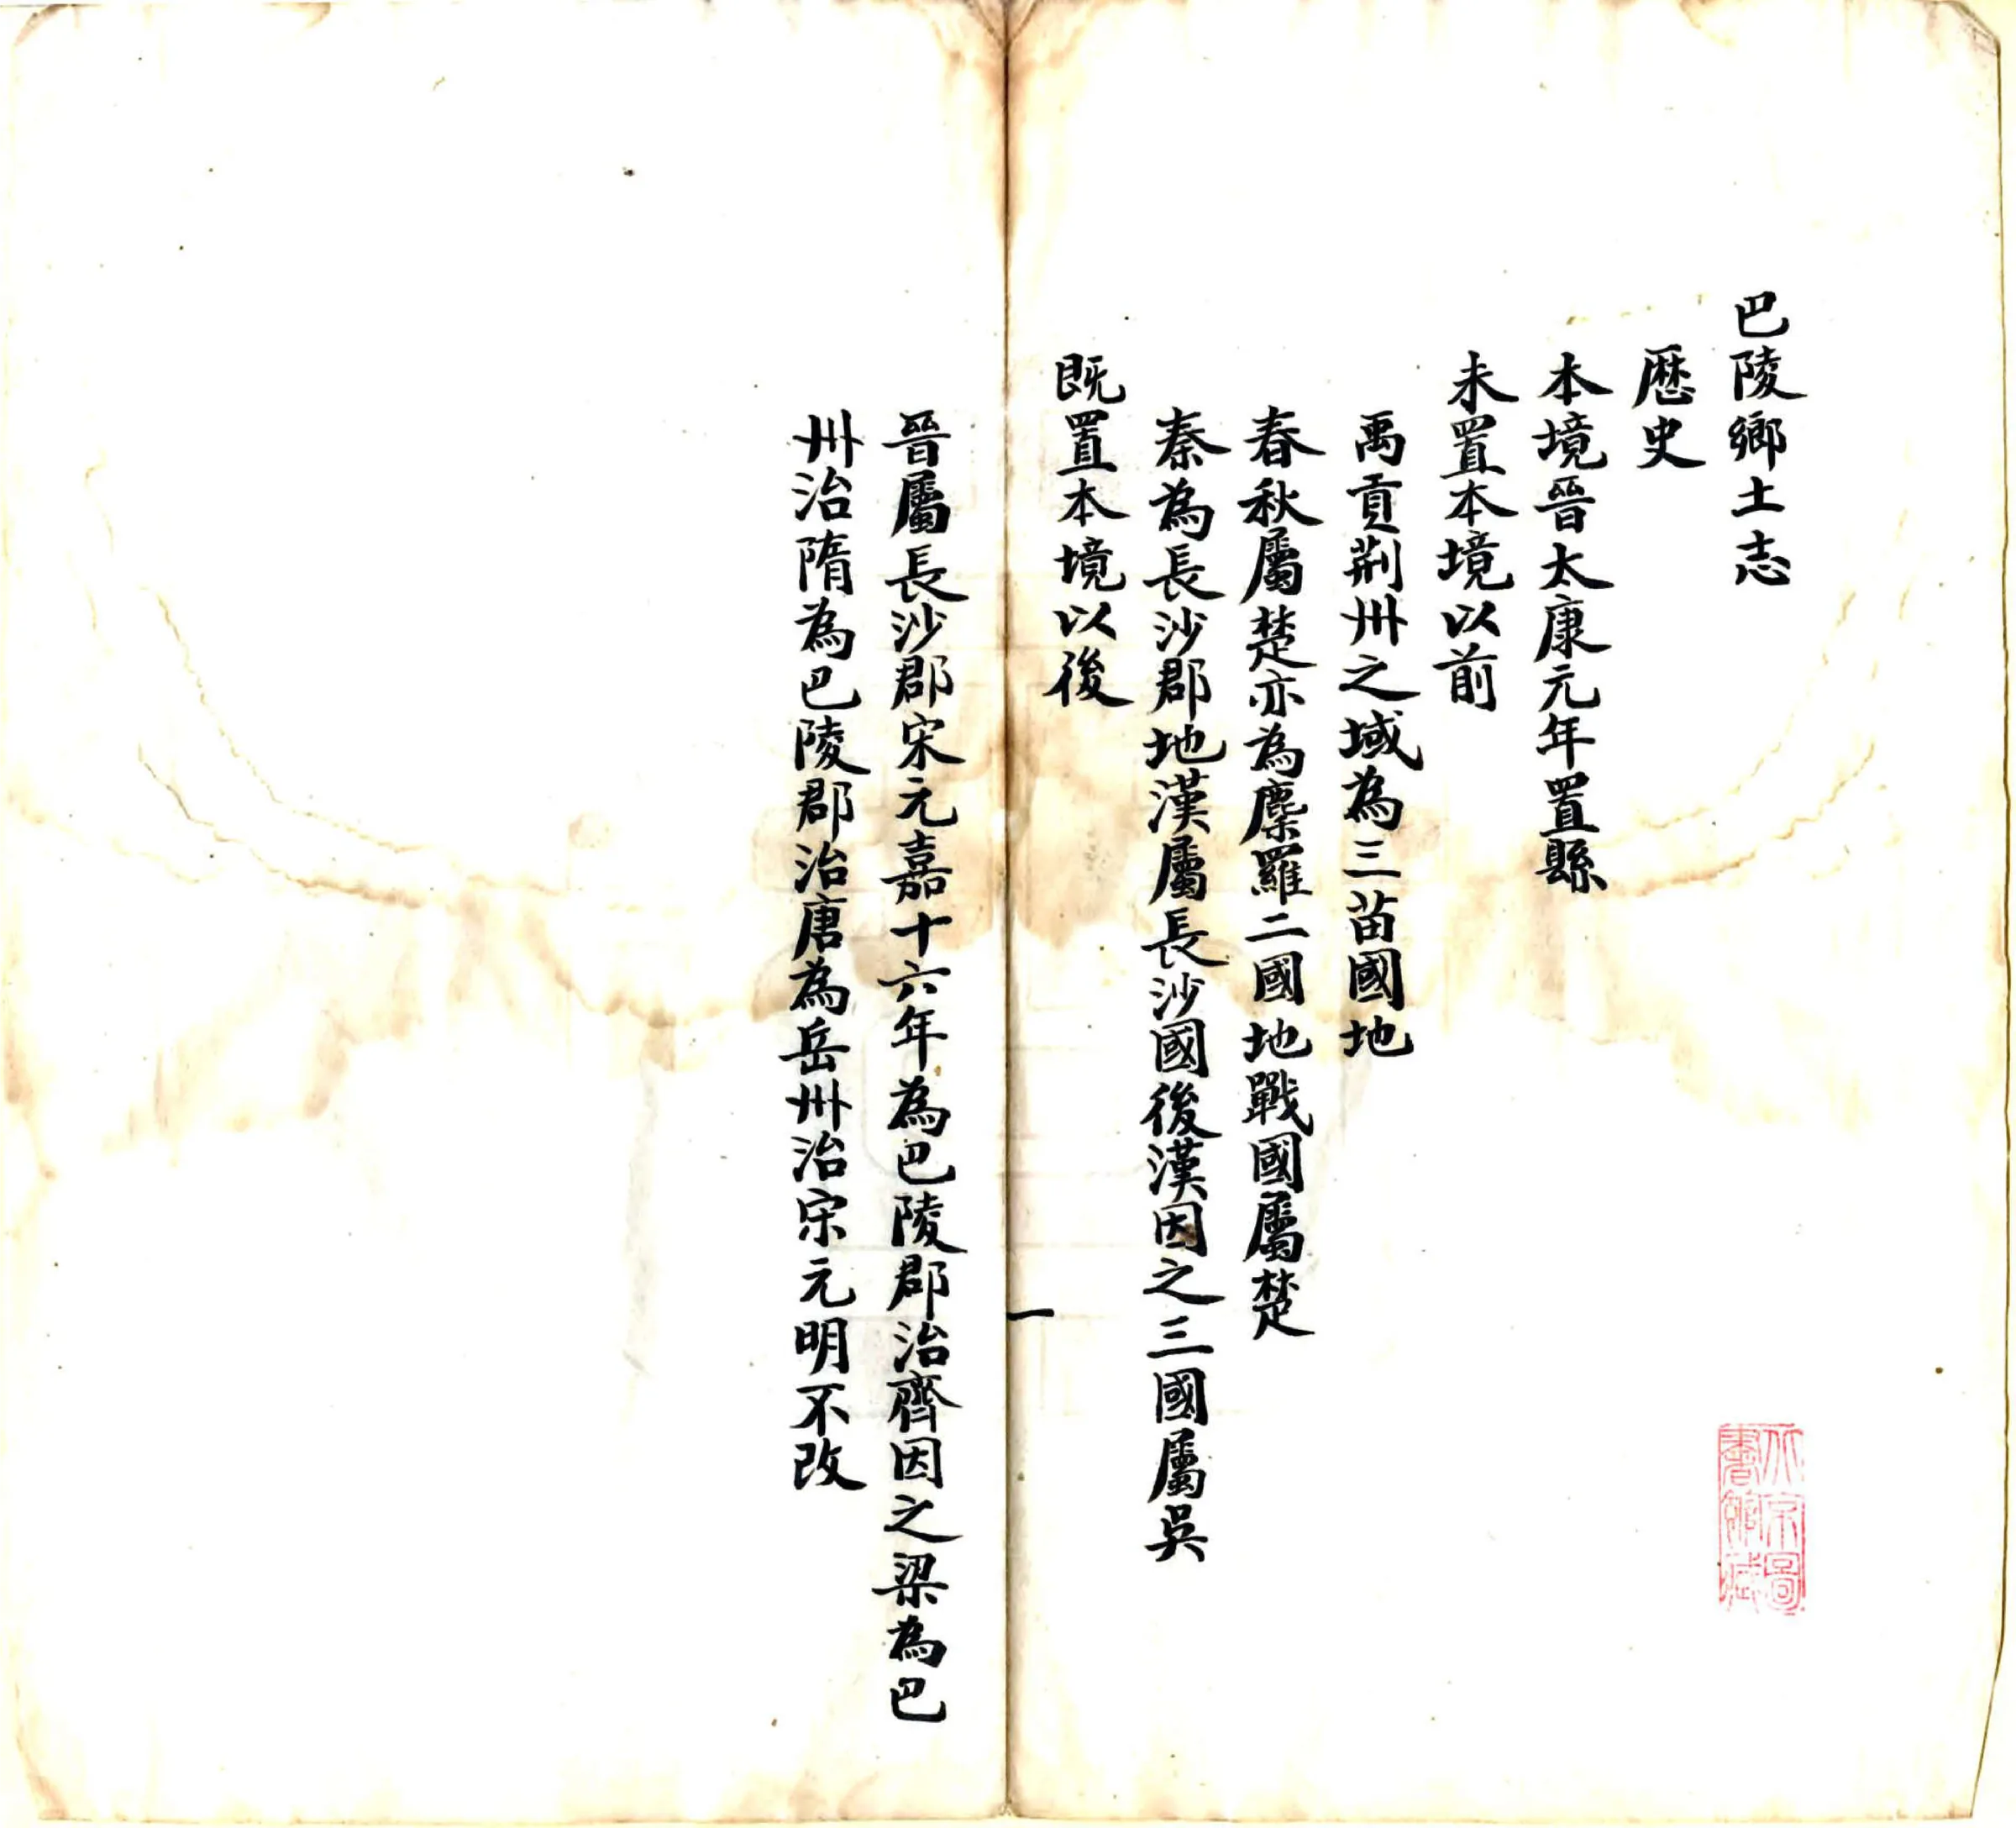 巴陵鄉土志
歷史
本境晉太康元年置縣
未置本境以前
禹貢荊州之域為三苗國地
春秋屬楚亦為麋羅二國地戰國屬楚
秦為長沙郡地漢屬長沙國後漢因之三國屬吳
既置本境以後
一
晉屬長沙郡宋元嘉十六年為巴陵郡治齊因之梁為巴
州治隋為巴陵郡治唐為岳州治宋元明不改